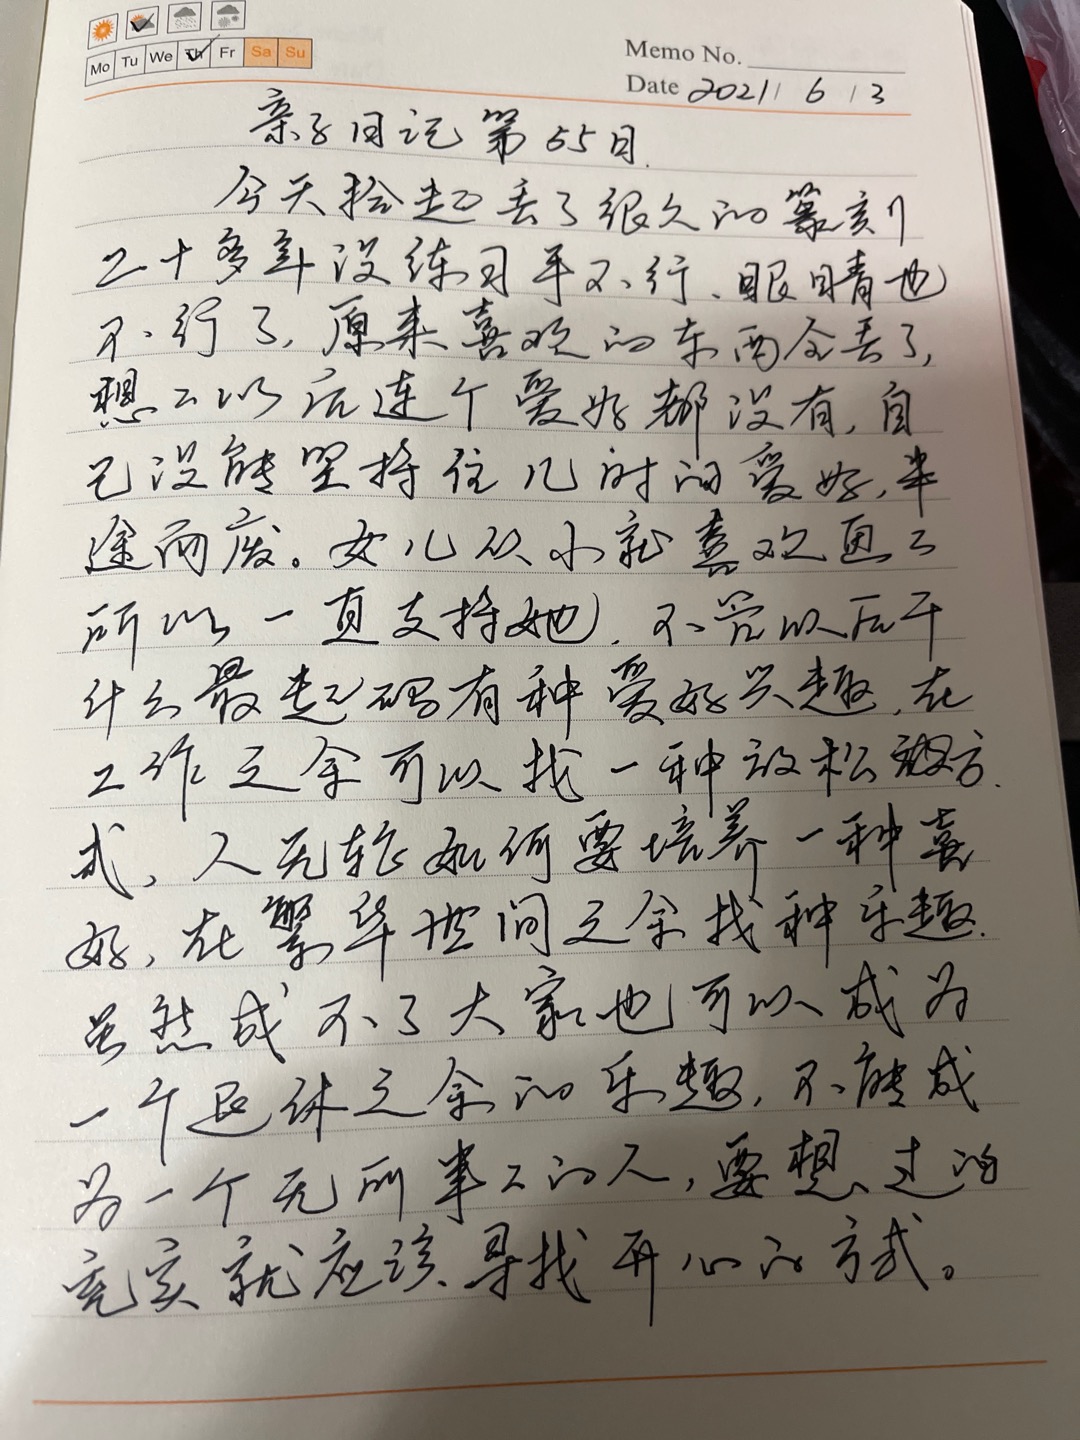 Mo Tu We Th Fr Sa Su
Memo No.
Date 2021/ 6 / 3
亲子日记第55日.
今天拾起丢了很久的篆刻
二十多年没练习手不行、眼睛也
不行了,原来喜欢的东西全丢了,
想々以后连个爱好都没有,自
己没能坚持住儿时的爱好,半
途而废。女儿从小就喜欢画々
所以一直支持她,不管以后干
什么最起码有种爱好兴趣,在
工作之余可以找一种放松方
式,人无论如何要培养一种喜
好,在繁华世间之余找种乐趣.
虽然成不了大家也可以成为
一个退休之余的乐趣,不能成
为一个无所事々的人,要想过的
充实就应该寻找开心的方式。